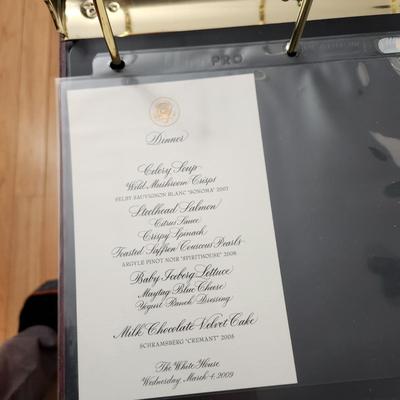 PRO
Dinner
Celery Soup
Wild Mushroom Crisps
SELBY SAUVIGNON BLANC "SONOMA" 2001
Steelhead Salmon
Citrus Sauce
Crispy Spinach
Toasted Saffron Couscous Pearls
ARGYLE PINOT NOIR "SPIRITHOUSE" 2006
Baby Iceberg Lettuce
Maytag Blue Cheese
Yogurt Ranch Dressing
Milk Chocolate Velvet Cake
SCHRAMSBERG "CREMANT" 2005
The White House
Wednesday, March 4, 2009